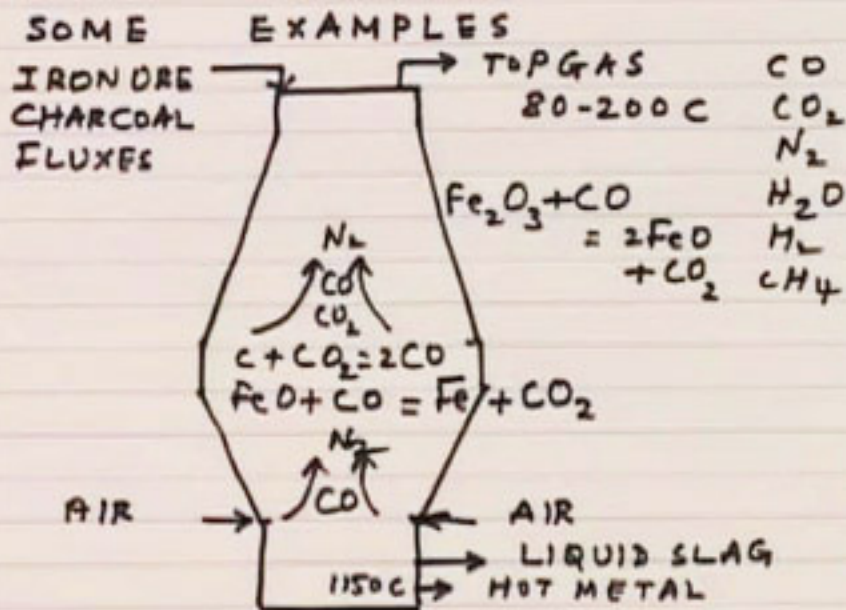 SOME EXAMPLES
IRON ORE
CHARCOAL
FLUXES
TOP GAS
80-200 C
CO
CO₂
N₂
H₂O
H₂
CH₄
Fe₂O₃+CO
= 2FeO
+CO₂
N₂
CO
CO₂
C+CO₂=2CO
FeO+CO=Fe+CO₂
N₂
CO
AIR
AIR
LIQUID SLAG
1150C
HOT METAL